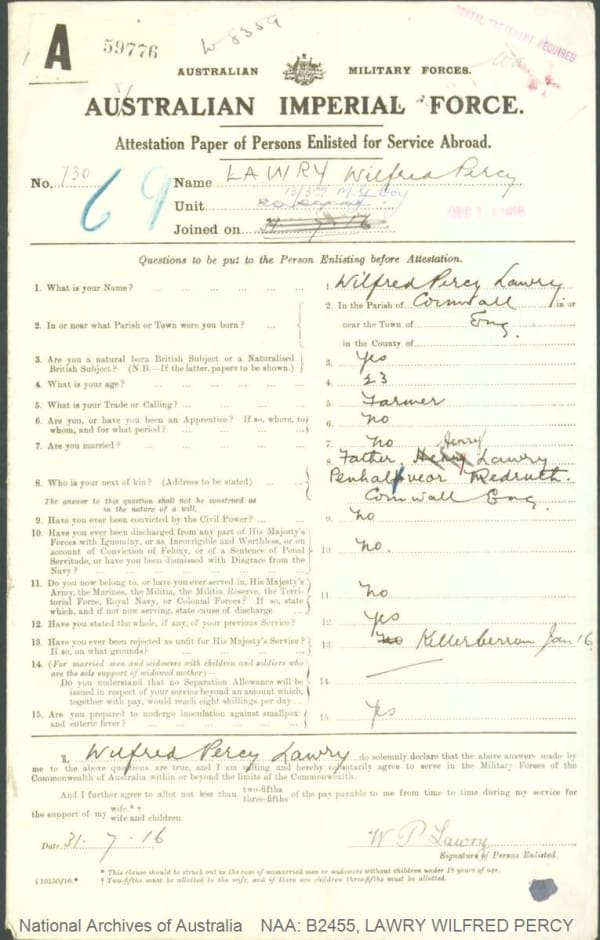 A
59776
W 8359
DENTAL TREATMENT REQUIRED.
AUSTRALIAN MILITARY FORCES.
AUSTRALIAN IMPERIAL FORCE.
Attestation Paper of Persons Enlisted for Service Abroad.
No. 730
69
Name LAWRY Wilfred Percy
Unit
Joined on 31 7 16
Questions to be put to the Person Enlisting before Attestation.
1. What is your Name? ... 1. Wilfred Percy Lawry
2. In or near what Parish or Town were you born? ... 2. In the Parish of Cornwall in or
near the Town of Eng.
in the County of
3. Are you a natural born British Subject or a Naturalised
British Subject? (N.B.—If the latter, papers to be shown.) 3. Yes
4. What is your age? ... 4. 23
5. What is your Trade or Calling? ... 5. Farmer
6. Are you, or have you been an Apprentice? If so, where, to
whom, and for what period? ... 6. No
7. Are you married? ... 7. No
8. Who is your next of kin? (Address to be stated) ... 8. Father. Henry Henry Lawry
Penhalvear Redruth.
Cornwall Eng.
The answer to this question shall not be construed as
in the nature of a will.
9. Have you ever been convicted by the Civil Power? ... 9. No
10. Have you ever been discharged from any part of His Majesty's
Forces with Ignominy, or as Incorrigible and Worthless, or on
account of Conviction of Felony, or of a Sentence of Penal
Servitude, or have you been Dismissed with Disgrace from the
Navy? ... 10. No.
11. Do you now belong to, or have you ever served in, His Majesty's
Army, the Marines, the Militia, the Militia Reserve, the Terri-
torial Force, Royal Navy, or Colonial Forces? If so, state
which, and if not now serving, state cause of discharge ... 11. No
12. Have you stated the whole, if any, of your previous Service? 12. Yes
13. Have you ever been rejected as unfit for His Majesty's Service?
If so, on what grounds? ... 13. No Kellerberron Jan 16
14. (For married men and widowers with children and soldiers who
are the sole support of widowed mother)—
Do you understand that no Separation Allowance will be
issued in respect of your service beyond an amount which,
together with pay, would reach eight shillings per day ... 14.
15. Are you prepared to undergo inoculation against smallpox
and enteric fever? ... 15. Yes
I, Wilfred Percy Lawry do solemnly declare that the above answers made by
me to the above questions are true, and I am willing and hereby voluntarily agree to serve in the Military Forces of the
Commonwealth of Australia within or beyond the limits of the Commonwealth.
And I further agree to allot not less than two-fifths three-fifths of the pay payable to me from time to time during my service for
the support of my wife.* † wife and children.
Date 31. 7. 16
W P Lawry
Signature of Person Enlisted.
* This clause should be struck out in the case of unmarried men or widowers without children under 18 years of age.
† Two-fifths must be allotted to the wife, and if there are children three-fifths must be allotted.
‡10150/16.*
National Archives of Australia NAA: B2455, LAWRY WILFRED PERCY